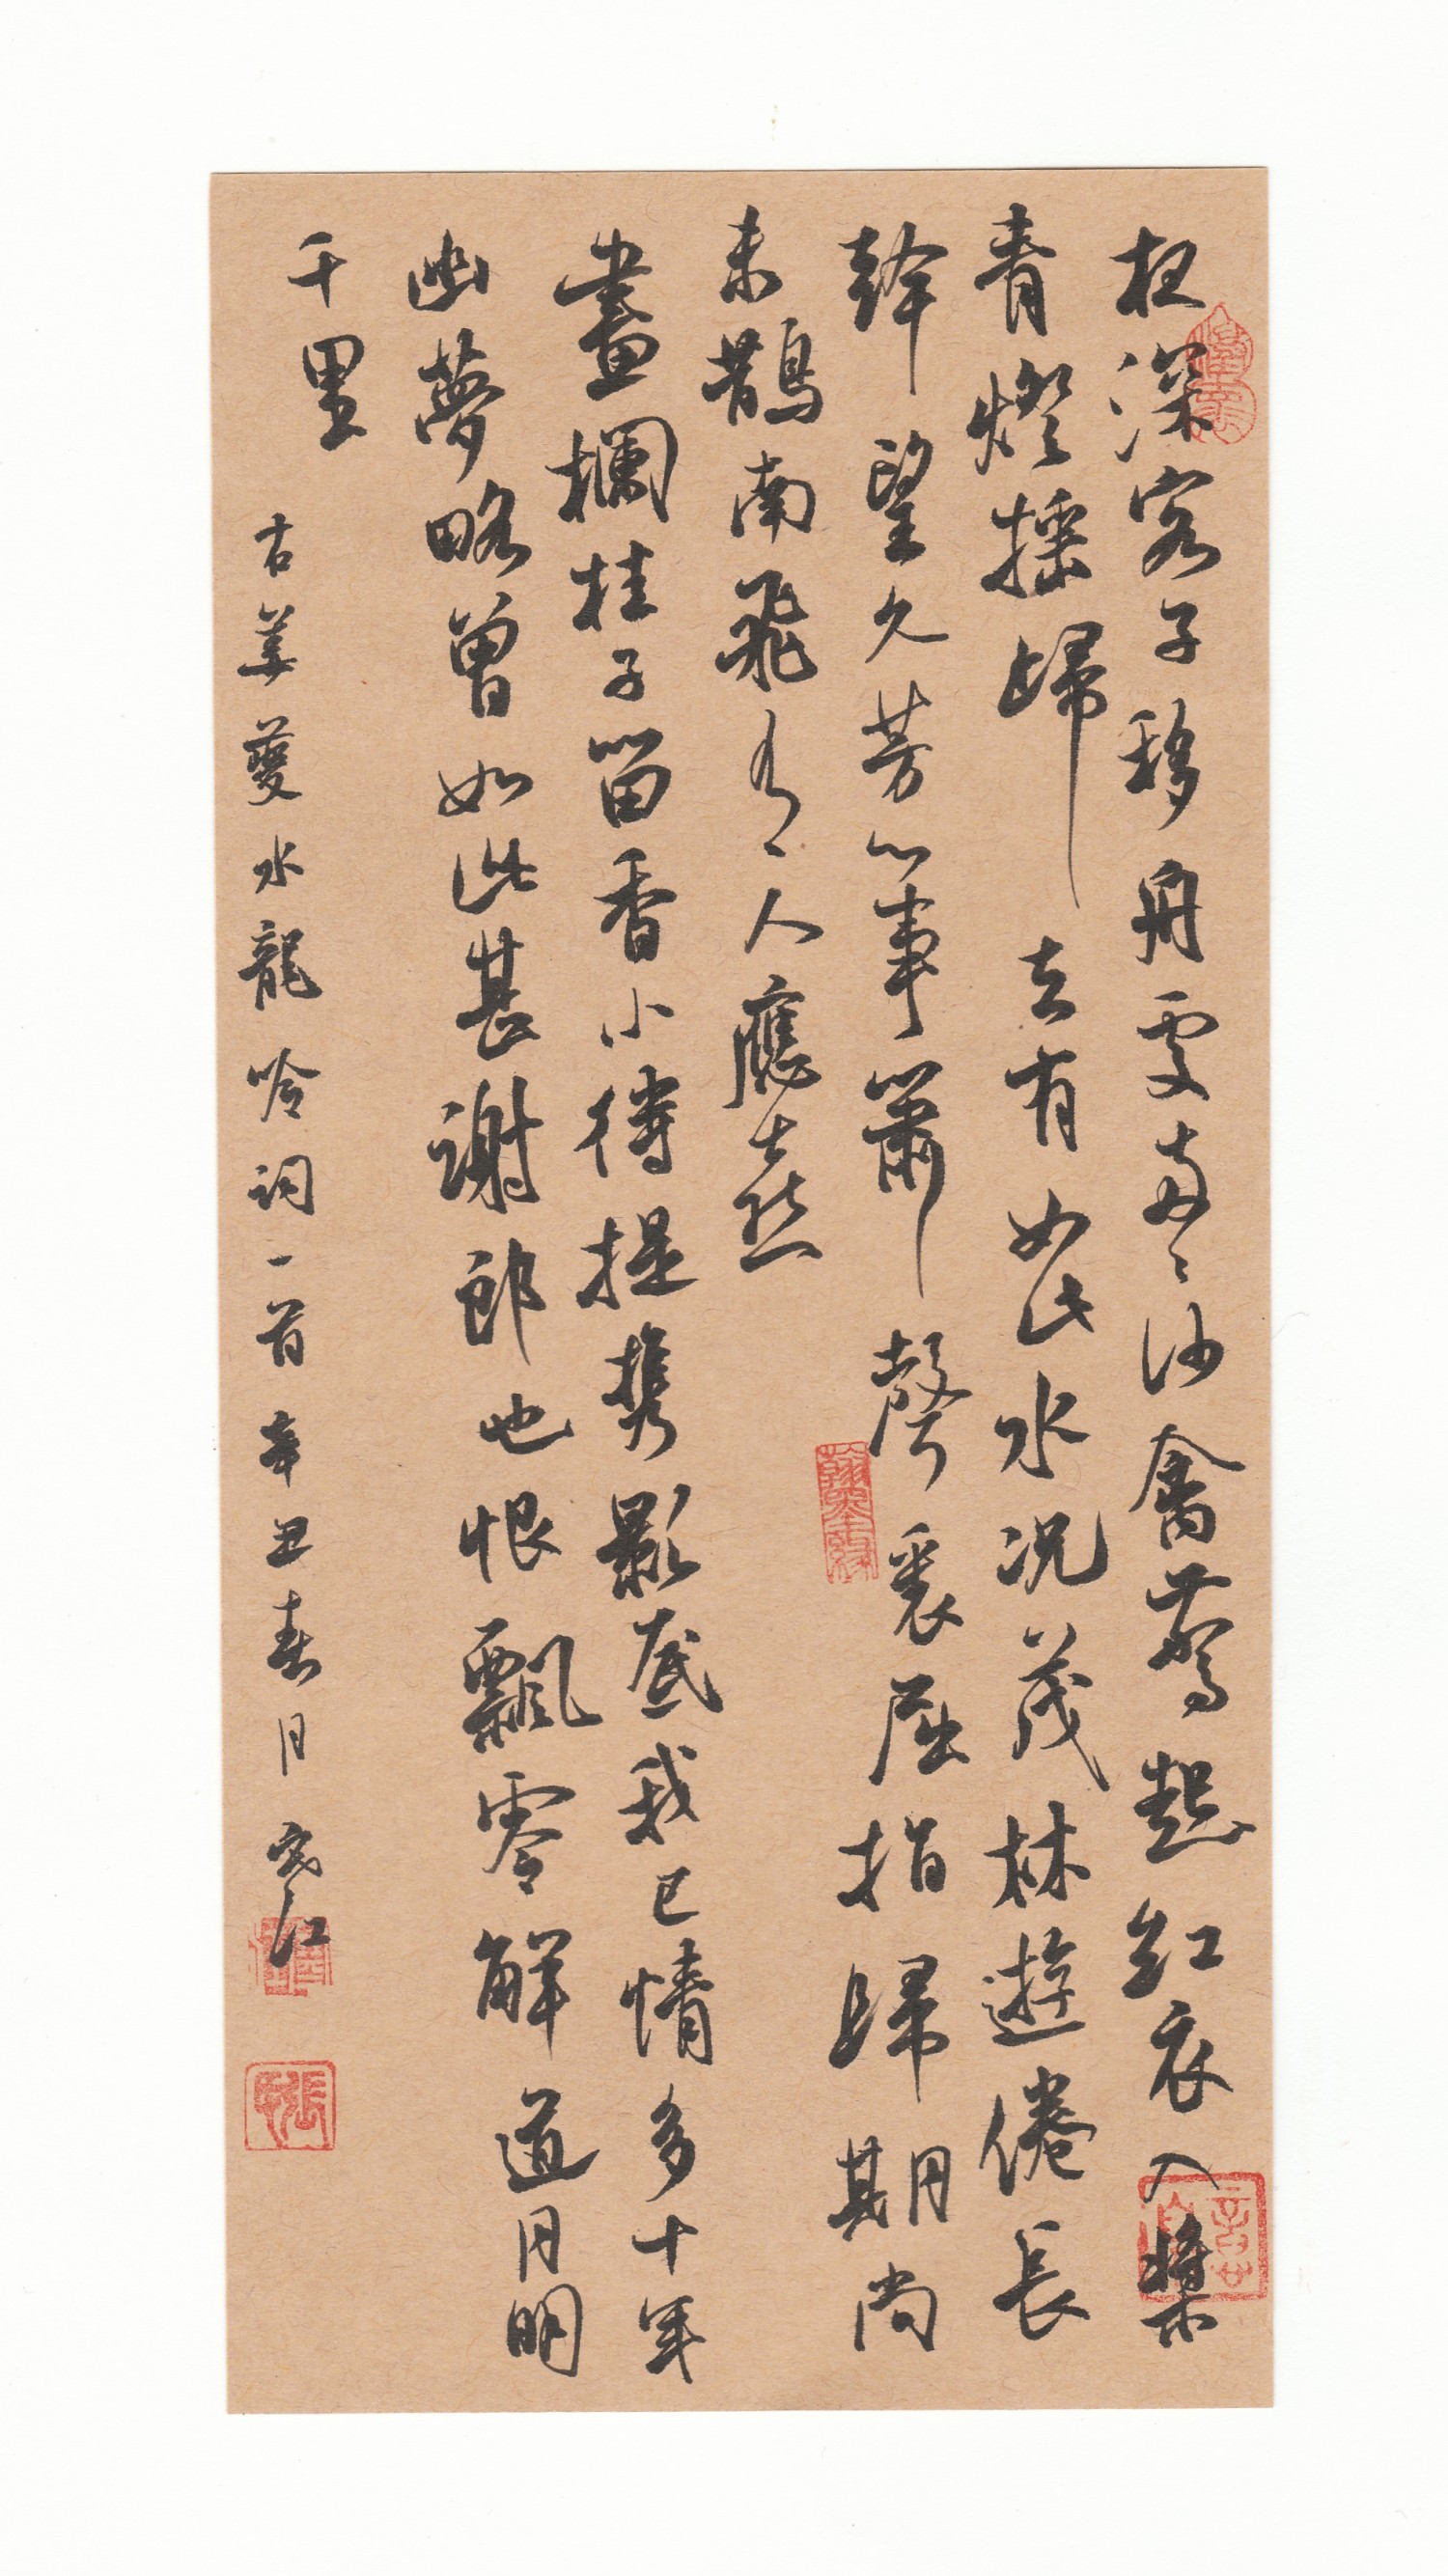 夜深客子移舟處兩々沙禽驚起紅衣入槳
青燈搖歸去有如此水況茂林遊倦長
幹望久芳心事簫聲裏屈指歸期尚
未鵲南飛有人應喜
畫欄桂子留香小待提攜影底我已情多十年
幽夢略曾如此甚謝郎也恨飄零解道月明
千里
古姜夔水龍吟詞一首辛丑春月江